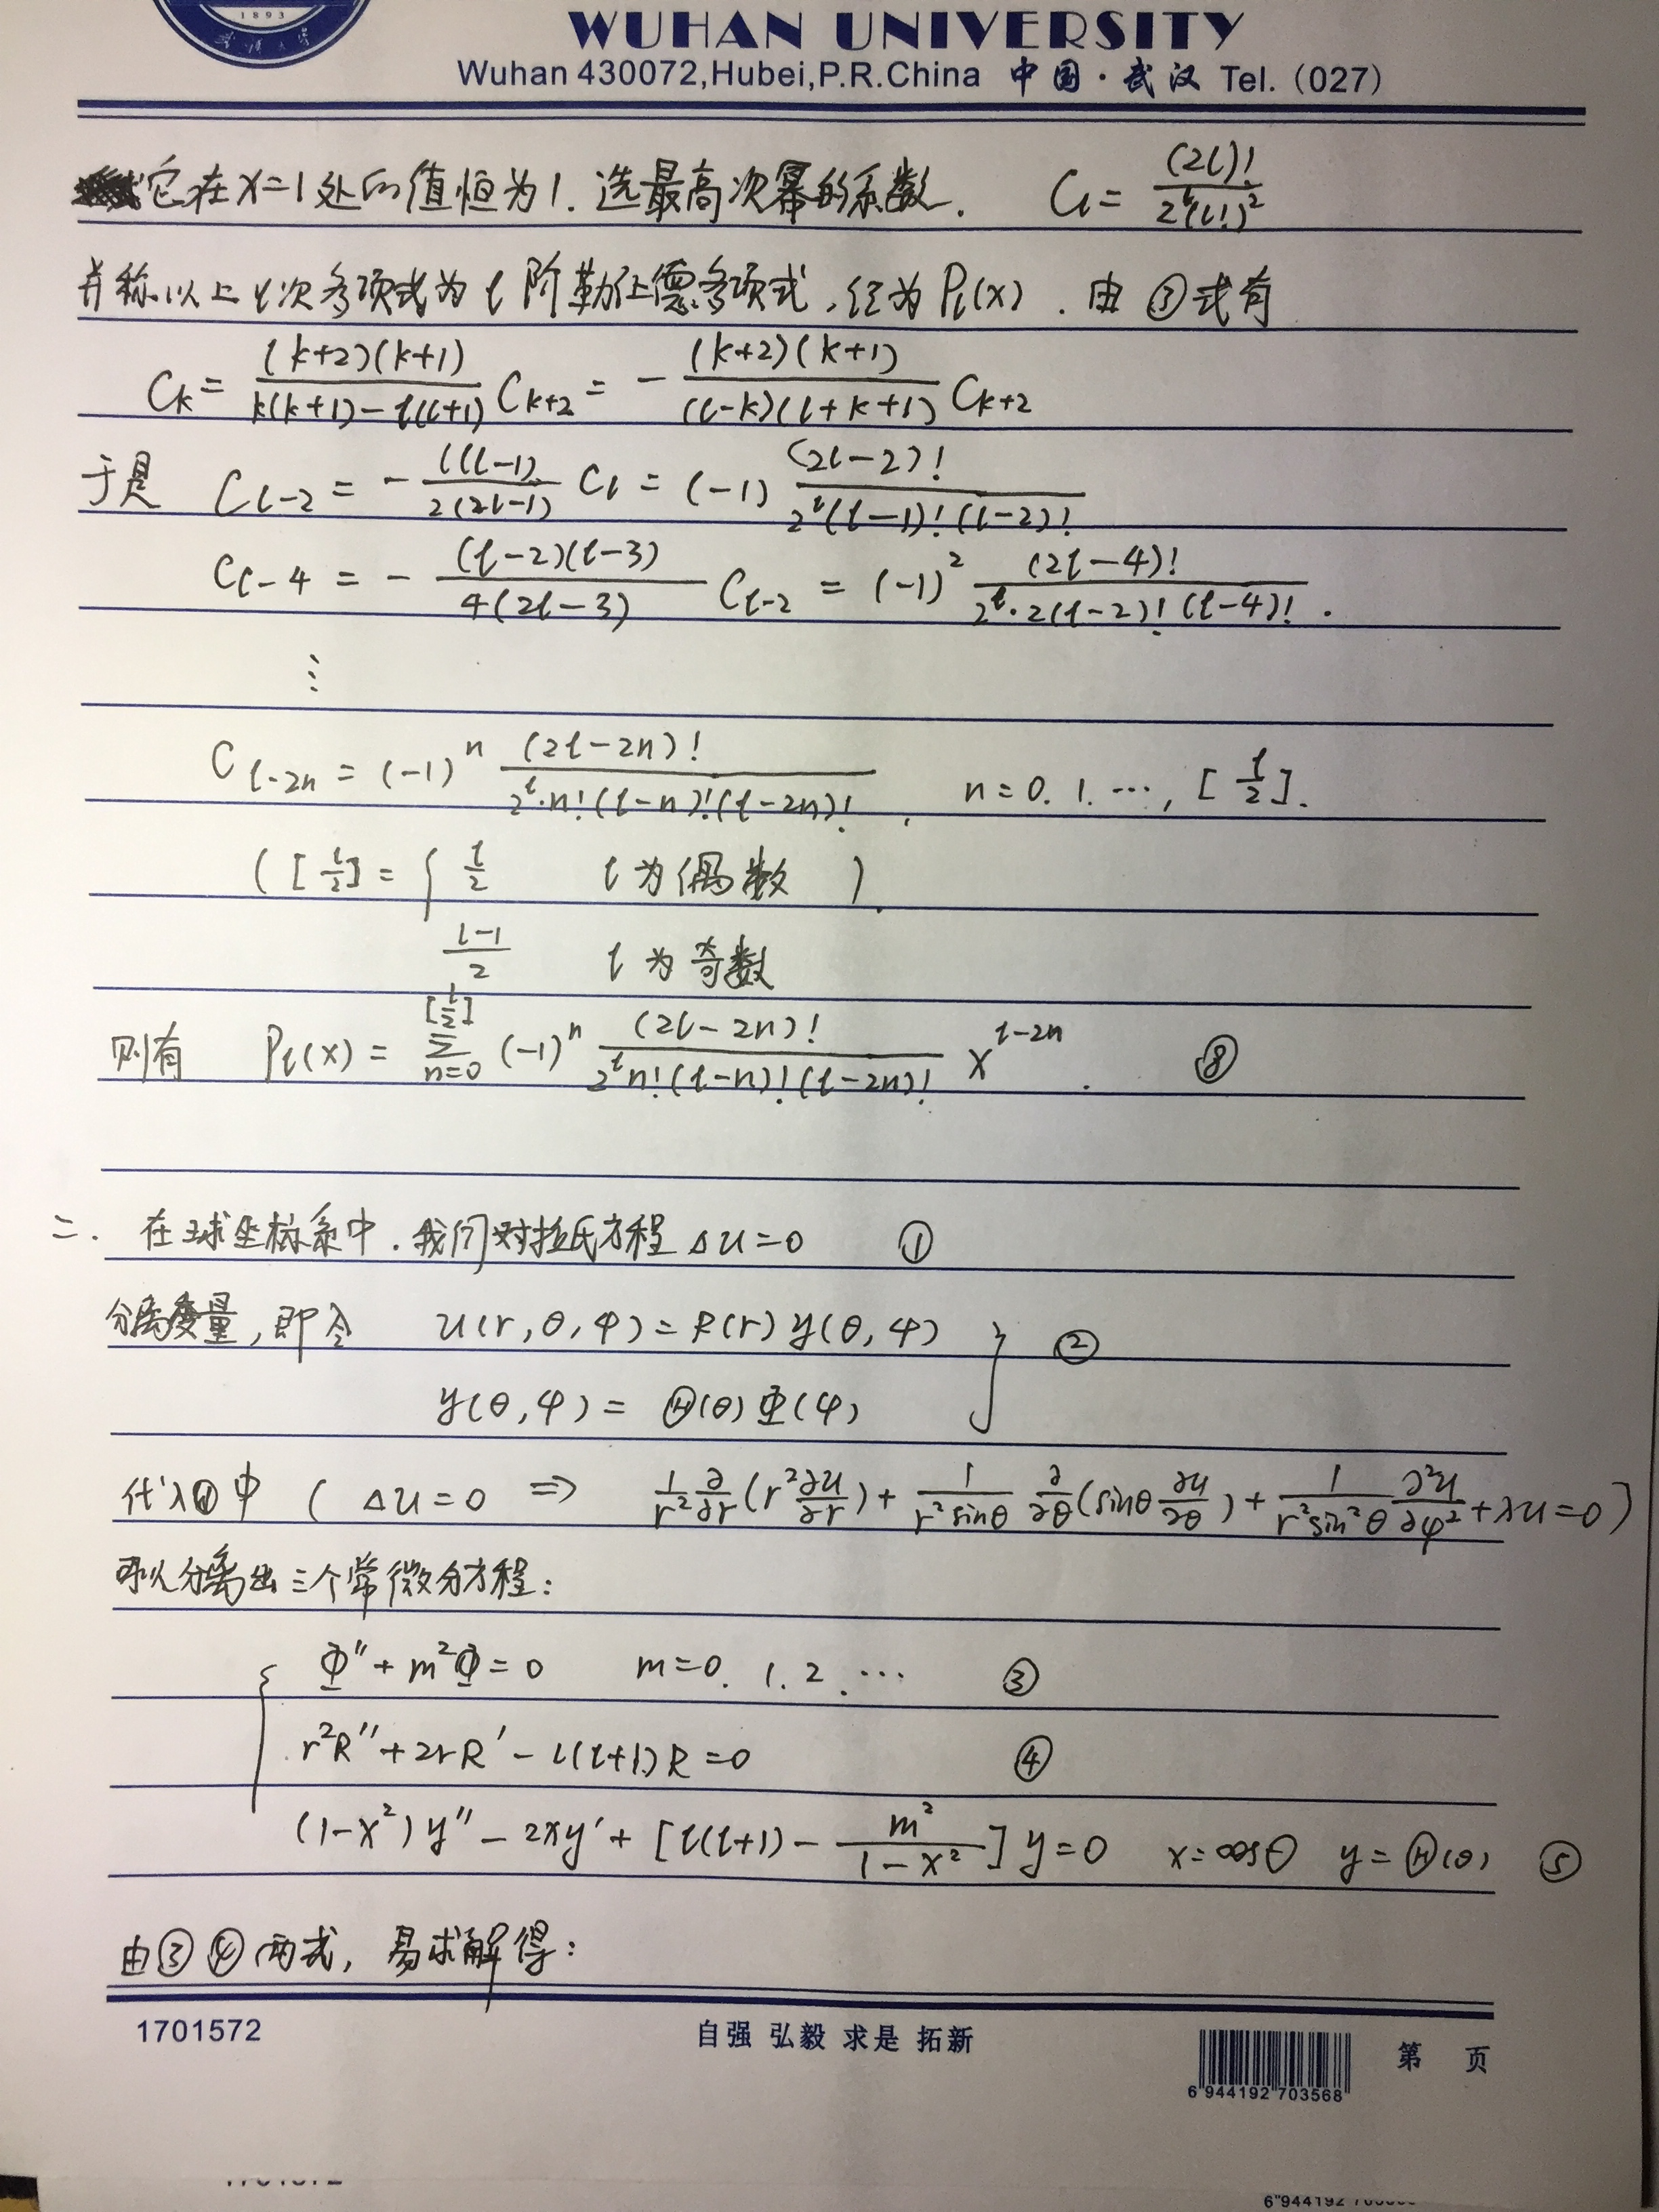 1893
WUHAN UNIVERSITY
Wuhan 430072,Hubei,P.R.China 中国·武汉 Tel. (027)
它在x=1处的值恒为1. 选最高次幂的系数. C_l = \frac{(2l)!}{2^l(l!)^2}
并称以上l次多项式为l阶勒让德多项式, 记为P_l(x). 由③式有
C_k = \frac{(k+2)(k+1)}{k(k+1)-l(l+1)} C_{k+2} = -\frac{(k+2)(k+1)}{(l-k)(l+k+1)} C_{k+2}
于是 C_{l-2} = -\frac{l(l-1)}{2(2l-1)} C_l = (-1)\frac{(2l-2)!}{2^l(l-1)!(l-2)!}
C_{l-4} = -\frac{(l-2)(l-3)}{4(2l-3)} C_{l-2} = (-1)^2 \frac{(2l-4)!}{2^l·2(l-2)!(l-4)!}.
⋮
C_{l-2n} = (-1)^n \frac{(2l-2n)!}{2^l·n!(l-n)!(l-2n)!}, n=0. 1. ⋯, [\frac{l}{2}].
([\frac{l}{2}] = { \frac{l}{2} l为偶数 ).
\frac{l-1}{2} l为奇数
则有 P_l(x) = \sum_{n=0}^{[\frac{l}{2}]} (-1)^n \frac{(2l-2n)!}{2^l n!(l-n)!(l-2n)!} x^{l-2n}. ⑧
二. 在球坐标系中. 我们对拉氏方程 Δu=0 ①
分离变量, 即令 u(r,θ,φ)=R(r)y(θ,φ) } ②
y(θ,φ) = Θ(θ)Φ(φ)
代入①中 ( Δu=0 ⇒ \frac{1}{r^2}\frac{∂}{∂r}(r^2\frac{∂u}{∂r}) + \frac{1}{r^2 sinθ}\frac{∂}{∂θ}(sinθ\frac{∂u}{∂θ}) + \frac{1}{r^2 sin^2θ}\frac{∂^2u}{∂φ^2} + λu=0 )
可以分离出三个常微分方程:
{ Φ''+m^2Φ=0 m=0. 1. 2. ⋯ ③
r^2R''+2rR'-l(l+1)R=0 ④
(1-x^2)y''-2xy'+[l(l+1)-\frac{m^2}{1-x^2}]y=0 x=cosθ y=Θ(θ) ⑤
由③④两式, 易求解得:
1701572 自强 弘毅 求是 拓新 第 页
6 944192 703568